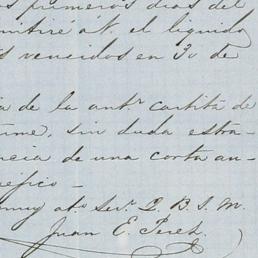 os primeros días del
mitiré á V. el líquido
s vencidos en 30 de
ia de la antr. cartita de
sin duda estra-
ncia de una corta au-
éfico -
muy ato. Servr. Q. B. S. M.
Juan E. Perez.